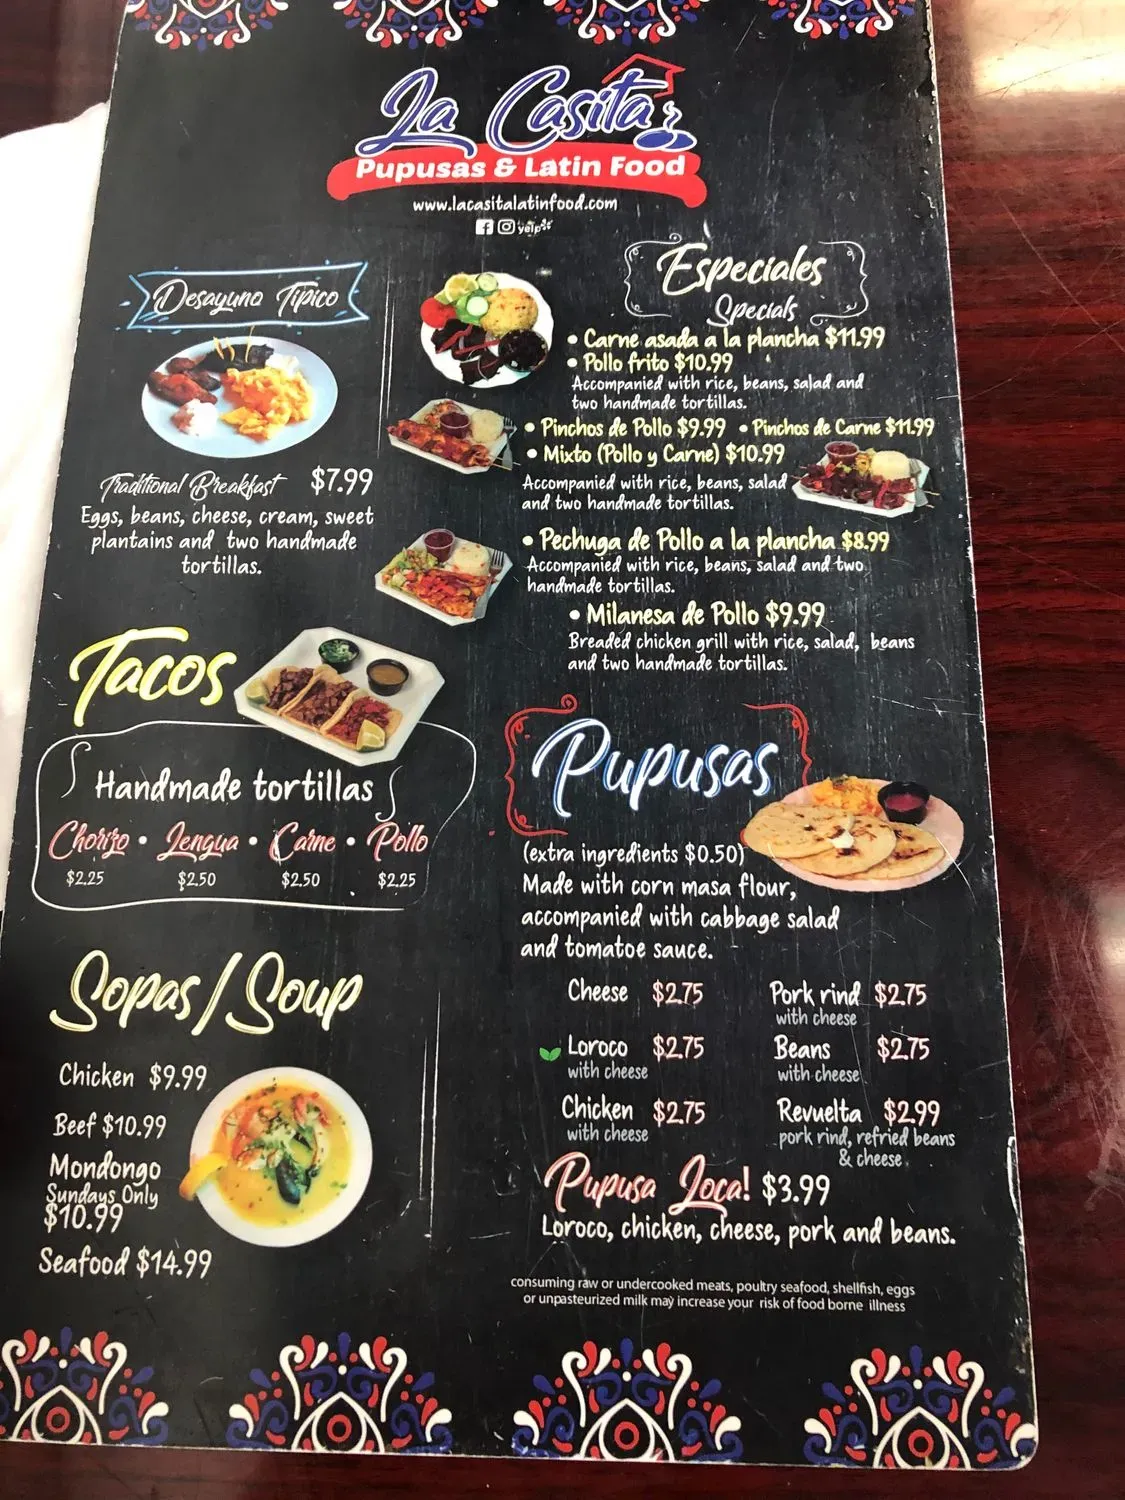 La Casita
Pupusas & Latin Food
www.lacasitalatinfood.com
yelp
Desayuno Típico
Traditional Breakfast $7.99
Eggs, beans, cheese, cream, sweet
plantains and two handmade
tortillas.
Especiales
Specials
• Carne asada a la plancha $11.99
• Pollo frito $10.99
Accompanied with rice, beans, salad and
two handmade tortillas.
• Pinchos de Pollo $9.99 • Pinchos de Carne $11.99
• Mixto (Pollo y Carne) $10.99
Accompanied with rice, beans, salad
and two handmade tortillas.
• Pechuga de Pollo a la plancha $8.99
Accompanied with rice, beans, salad and two
handmade tortillas.
• Milanesa de Pollo $9.99
Breaded chicken grill with rice, salad, beans
and two handmade tortillas.
Tacos
Handmade tortillas
Chorizo • Lengua • Carne • Pollo
$2.25 $2.50 $2.50 $2.25
Sopas / Soup
Chicken $9.99
Beef $10.99
Mondongo
Sundays Only
$10.99
Seafood $14.99
Pupusas
(extra ingredients $0.50)
Made with corn masa flour,
accompanied with cabbage salad
and tomatoe sauce.
Cheese $2.75
Loroco $2.75
with cheese
Chicken $2.75
with cheese
Pork rind $2.75
with cheese
Beans $2.75
with cheese
Revuelta $2.99
pork rind, refried beans
& cheese
Pupusa Loca! $3.99
Loroco, chicken, cheese, pork and beans.
consuming raw or undercooked meats, poultry seafood, shellfish, eggs
or unpasteurized milk may increase your risk of food borne illness